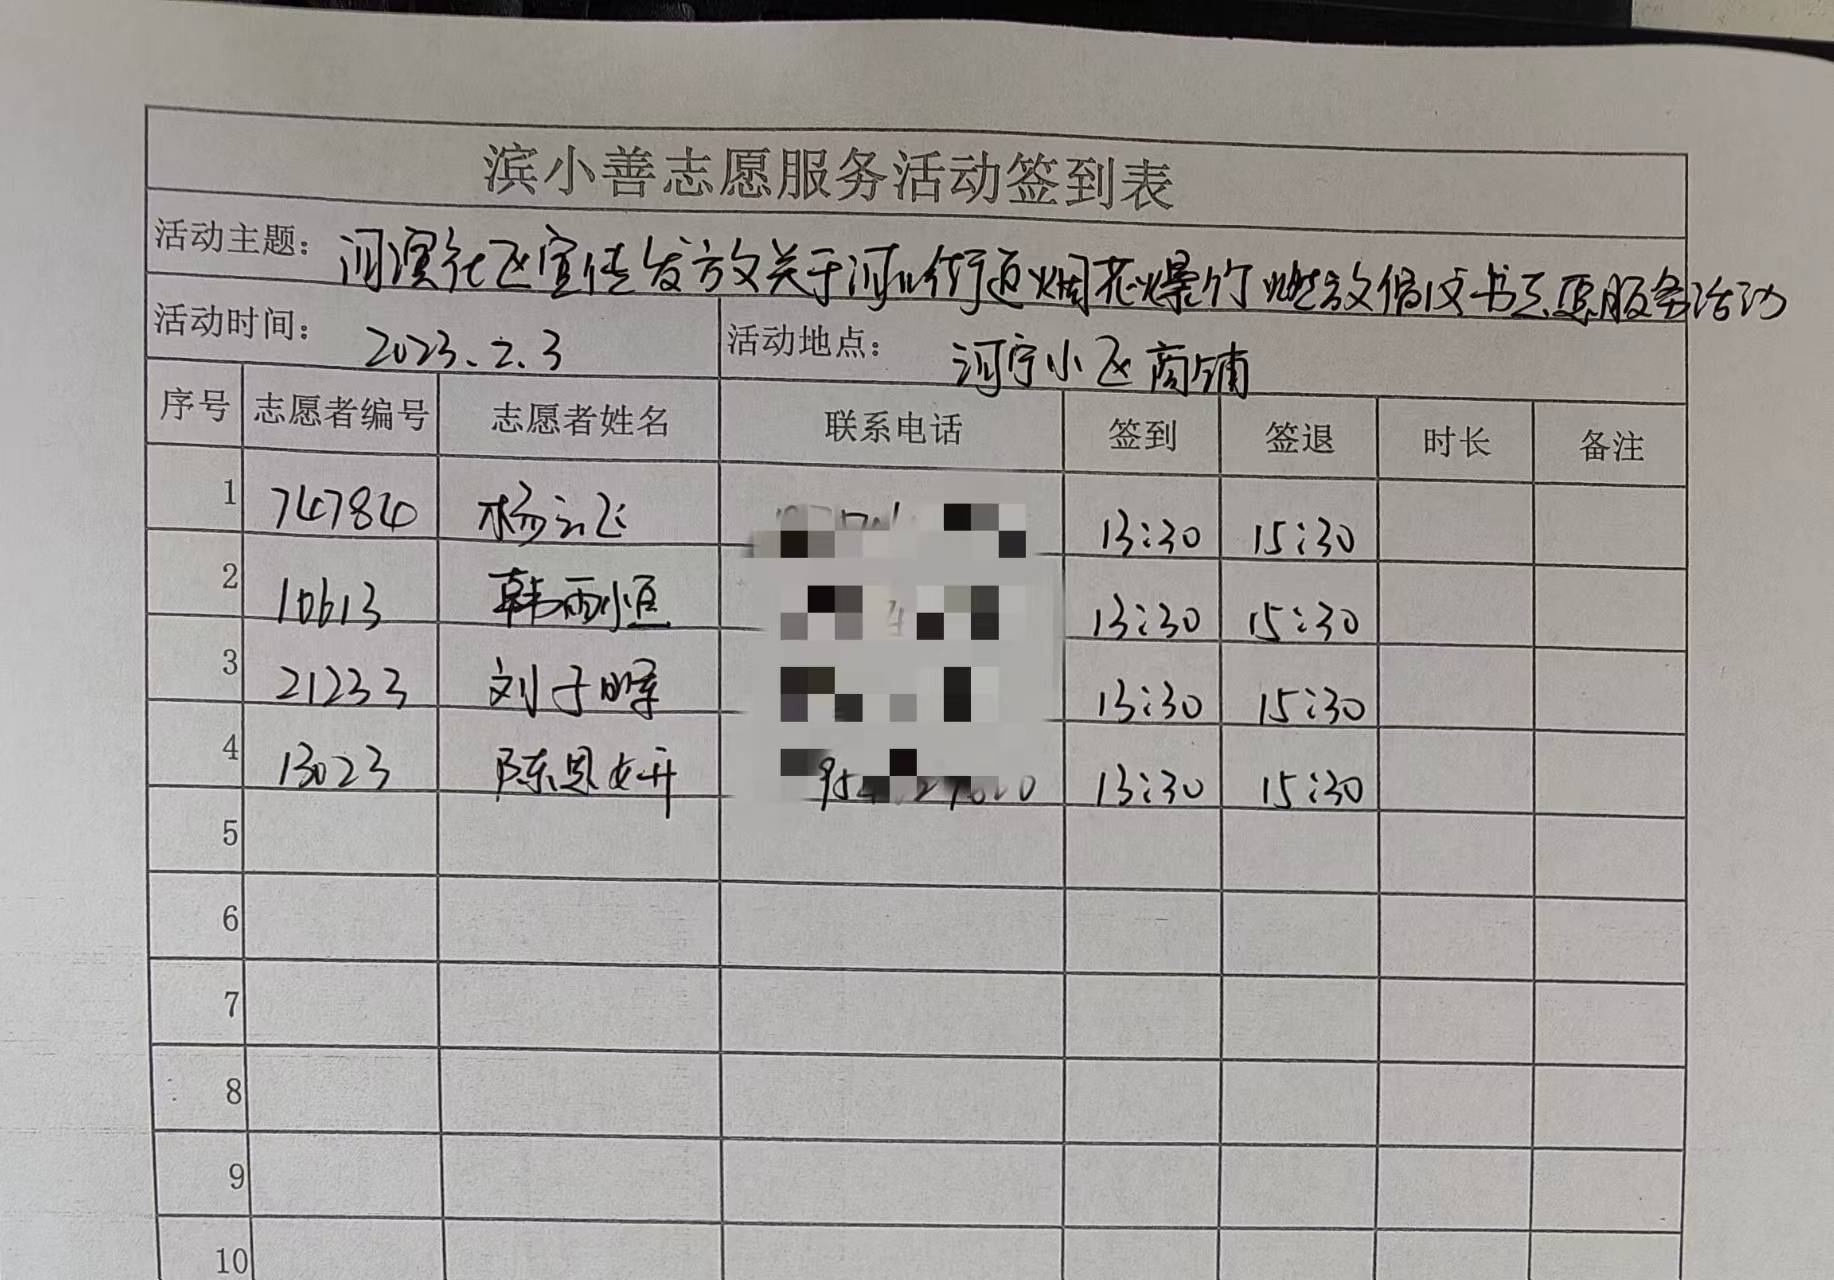 滨小善志愿服务活动签到表
活动主题: 河滨社区宣传发放关于河山街道烟花爆竹燃放倡议书志愿服务活动
活动时间: 2023.2.3 活动地点: 河宁小区商铺
序号 志愿者编号 志愿者姓名 联系电话 签到 签退 时长 备注
1 74784 杨云飞 13:30 15:30
2 10613 韩雨恒 13:30 15:30
3 21233 刘子晖 13:30 15:30
4 13023 陈恩妍 13:30 15:30
5
6
7
8
9
10